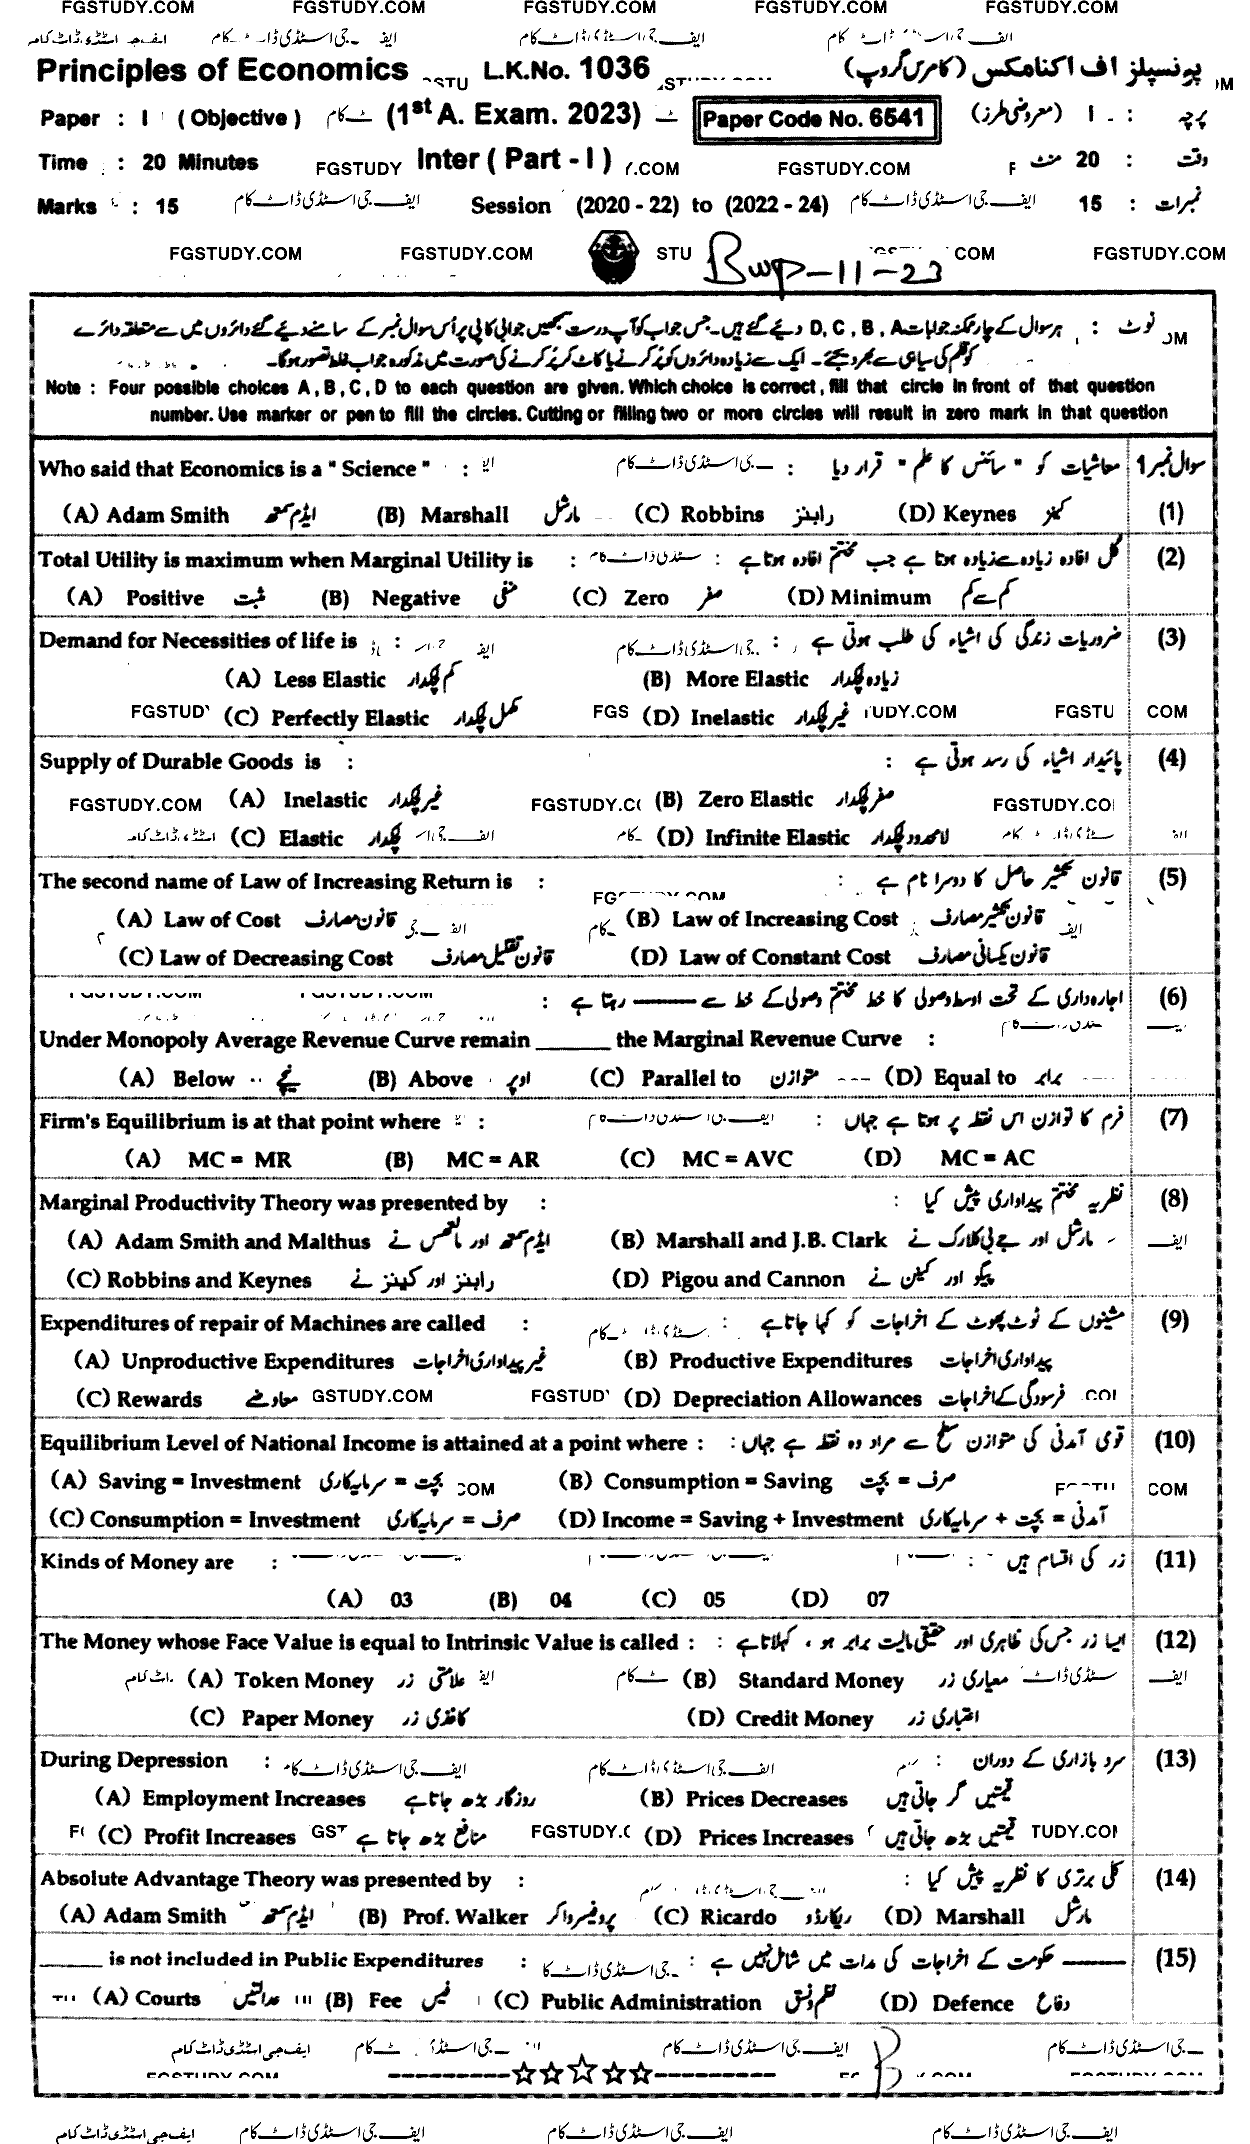 FGSTUDY.COM FGSTUDY.COM FGSTUDY.COM FGSTUDY.COM FGSTUDY.COM
Principles of Economics L.K.No. 1036 پرنسپلز آف اکنامکس (کامرس گروپ)
Paper : I (Objective) (1st A. Exam. 2023) Paper Code No. 6541 پرچہ : I (معروضی طرز)
Time : 20 Minutes FGSTUDY Inter ( Part - I ) FGSTUDY.COM وقت : 20 منٹ
Marks : 15 ایف جی اسٹڈی ڈاٹ کام Session (2020 - 22) to (2022 - 24) ایف جی اسٹڈی ڈاٹ کام نمبرات : 15
FGSTUDY.COM FGSTUDY.COM STU Bwp-11-23 COM FGSTUDY.COM
نوٹ : ہر سوال کے چار ممکنہ جوابات D, C, B, A دیئے گئے ہیں۔ جس جواب کو آپ درست سمجھیں جوابی کاپی پر اُس سوال نمبر کے سامنے دیئے گئے دائروں میں سے متعلقہ دائرے
کو قلم کی سیاہی سے بھر دیجئے۔ ایک سے زیادہ دائروں کو پُر کرنے یا کاٹ کر پُر کرنے کی صورت میں مذکورہ جواب غلط تصور ہوگا۔
Note : Four possible choices A, B, C, D to each question are given. Which choice is correct, fill that circle in front of that question
number. Use marker or pen to fill the circles. Cutting or filling two or more circles will result in zero mark in that question
Who said that Economics is a " Science " : معاشیات کو " سائنس کا علم " قرار دیا : سوال نمبر 1
(A) Adam Smith ایڈم سمتھ (B) Marshall مارشل (C) Robbins رابنز (D) Keynes کینز (1)
Total Utility is maximum when Marginal Utility is : کل افادہ زیادہ سے زیادہ ہوتا ہے جب مختتم افادہ ہوتا ہے : (2)
(A) Positive مثبت (B) Negative منفی (C) Zero صفر (D) Minimum کم سے کم
Demand for Necessities of life is : ضروریات زندگی کی اشیاء کی طلب ہوتی ہے : (3)
(A) Less Elastic کم لچکدار (B) More Elastic زیادہ لچکدار
(C) Perfectly Elastic مکمل لچکدار (D) Inelastic غیر لچکدار
Supply of Durable Goods is : پائیدار اشیاء کی رسد ہوتی ہے : (4)
FGSTUDY.COM (A) Inelastic غیر لچکدار (B) Zero Elastic صفر لچکدار
(C) Elastic لچکدار (D) Infinite Elastic لامحدود لچکدار
The second name of Law of Increasing Return is : قانون تکثیر حاصل کا دوسرا نام ہے : (5)
(A) Law of Cost قانون مصارف (B) Law of Increasing Cost قانون تکثیر مصارف
(C) Law of Decreasing Cost قانون تقلیل مصارف (D) Law of Constant Cost قانون یکسانی مصارف
اجارہ داری کے تحت اوسط وصولی کا خط مختتم وصولی کے خط سے ——— رہتا ہے : (6)
Under Monopoly Average Revenue Curve remain ______ the Marginal Revenue Curve :
(A) Below نیچے (B) Above اوپر (C) Parallel to متوازن (D) Equal to برابر
Firm's Equilibrium is at that point where : فرم کا توازن اس نقطہ پر ہوتا ہے جہاں : (7)
(A) MC = MR (B) MC = AR (C) MC = AVC (D) MC = AC
Marginal Productivity Theory was presented by : نظریہ مختتم پیداواری پیش کیا : (8)
(A) Adam Smith and Malthus ایڈم سمتھ اور مالتھس نے (B) Marshall and J.B. Clark مارشل اور جے بی کلارک نے
(C) Robbins and Keynes رابنز اور کینز نے (D) Pigou and Cannon پیگو اور کینن نے
Expenditures of repair of Machines are called : مشینوں کے ٹوٹ پھوٹ کے اخراجات کو کہا جاتا ہے : (9)
(A) Unproductive Expenditures غیر پیداواری اخراجات (B) Productive Expenditures پیداواری اخراجات
(C) Rewards معاوضے (D) Depreciation Allowances فرسودگی کے اخراجات
Equilibrium Level of National Income is attained at a point where : قومی آمدنی کی متوازن سطح سے مراد وہ نقطہ ہے جہاں : (10)
(A) Saving = Investment بچت = سرمایہ کاری (B) Consumption = Saving صرف = بچت
(C) Consumption = Investment صرف = سرمایہ کاری (D) Income = Saving + Investment آمدنی = بچت + سرمایہ کاری
Kinds of Money are : زر کی اقسام ہیں : (11)
(A) 03 (B) 04 (C) 05 (D) 07
The Money whose Face Value is equal to Intrinsic Value is called : ایسا زر جس کی ظاہری اور حقیقی مالیت برابر ہو ، کہلاتا ہے : (12)
(A) Token Money علامتی زر (B) Standard Money معیاری زر
(C) Paper Money کاغذی زر (D) Credit Money اعتباری زر
During Depression : سرد بازاری کے دوران : (13)
(A) Employment Increases روزگار بڑھ جاتا ہے (B) Prices Decreases قیمتیں گر جاتی ہیں
(C) Profit Increases منافع بڑھ جاتا ہے (D) Prices Increases قیمتیں بڑھ جاتی ہیں
Absolute Advantage Theory was presented by : کلی برتری کا نظریہ پیش کیا : (14)
(A) Adam Smith ایڈم سمتھ (B) Prof. Walker پروفیسر واکر (C) Ricardo ریکارڈو (D) Marshall مارشل
______ is not included in Public Expenditures : ——— حکومت کے اخراجات کی مدات میں شامل نہیں ہے : (15)
(A) Courts عدالتیں (B) Fee فیس (C) Public Administration نظم و نسق (D) Defence دفاع
ایف جی اسٹڈی ڈاٹ کام ایف جی اسٹڈی ڈاٹ کام ایف جی اسٹڈی ڈاٹ کام